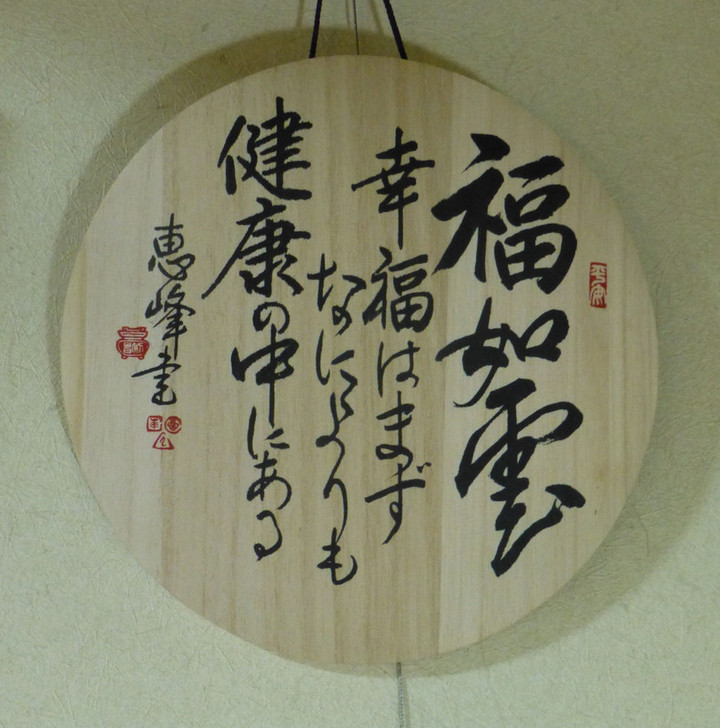 福如雲
幸福はまず
なによりも
健康の中にある
恵峰書